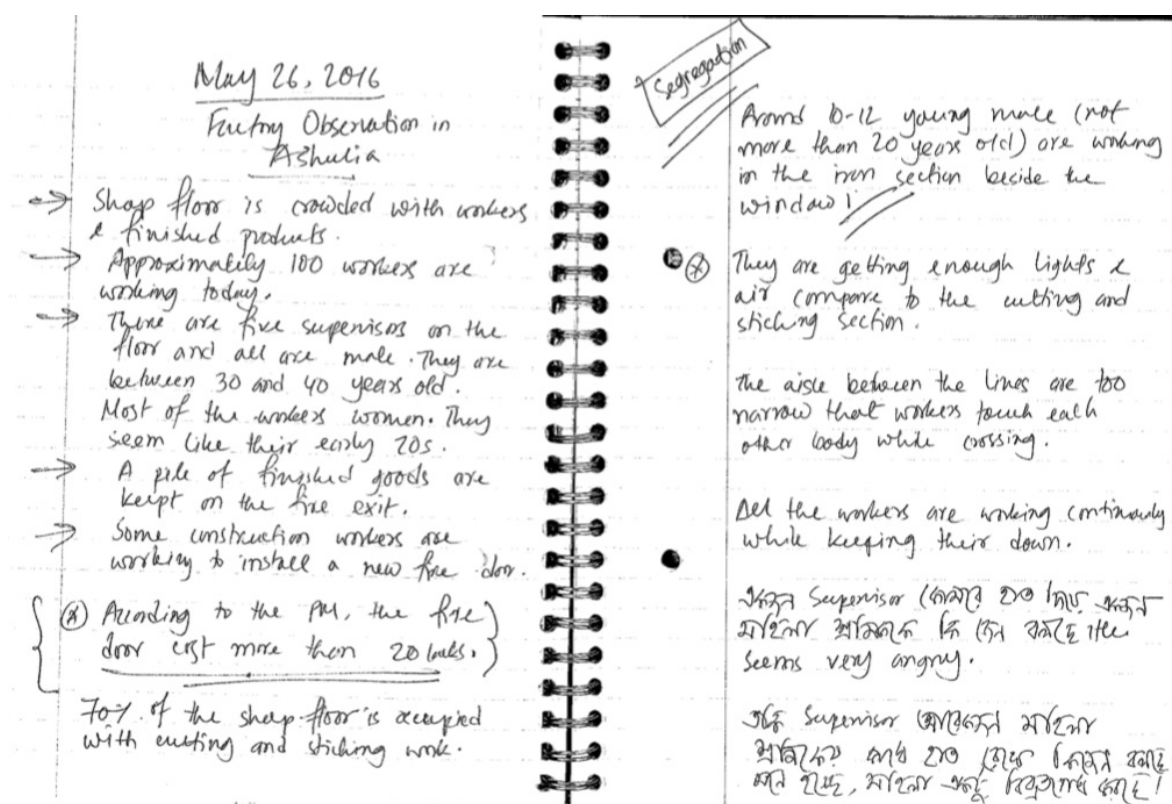 May 26, 2016
Factory Observation in
Ashulia
→ Shop floor is crowded with workers
& finished products.
→ Approximately 100 workers are
working today.
→ There are five supervisors on the
floor and all are male. They are
between 30 and 40 years old.
Most of the workers women. They
seem like their early 20s.
→ A pile of finished goods are
keept on the fire exit.
→ Some construction workers are
working to install a new fire door.
According to the PM, the fire
door cost more than 20 laks.
70% of the shop floor is occupied
with cutting and stiching work.
Segregation
Around 10-12 young male (not
more than 20 years old) are working
in the iron section beside the
window!
They are getting enough lights &
air compare to the cutting and
stiching section.
The aisle between the lines are too
narrow that workers touch each
other body while crossing.
All the workers are working continously
while keeping their down.
একজন Supervisor কোমরে হাত দিয়ে একজন
মহিলা শ্রমিককে কি যেন বলছে। He
seems very angry.
Supervisor আরেকজন মহিলা
শ্রমিকের কাধে হাত রেখে বলছে
মনে হচ্ছে, মহিলা একটু বিব্রতবোধ করছে!